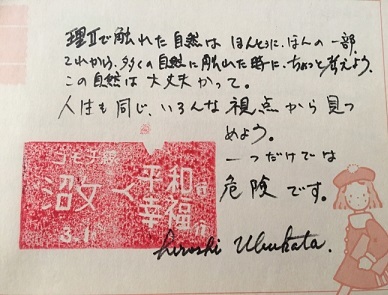 理Ⅱで触れた自然は ほんとうに、ほんの一部。
これから、多くの自然に触れた時に、ちょっと考えよう。
この自然は大丈夫かって。
人生も同じ、いろんな視点から見つ
めよう。
一つだけでは
危険です。
沼牧
平和
幸福
3.1
Hiroshi Ubukata.